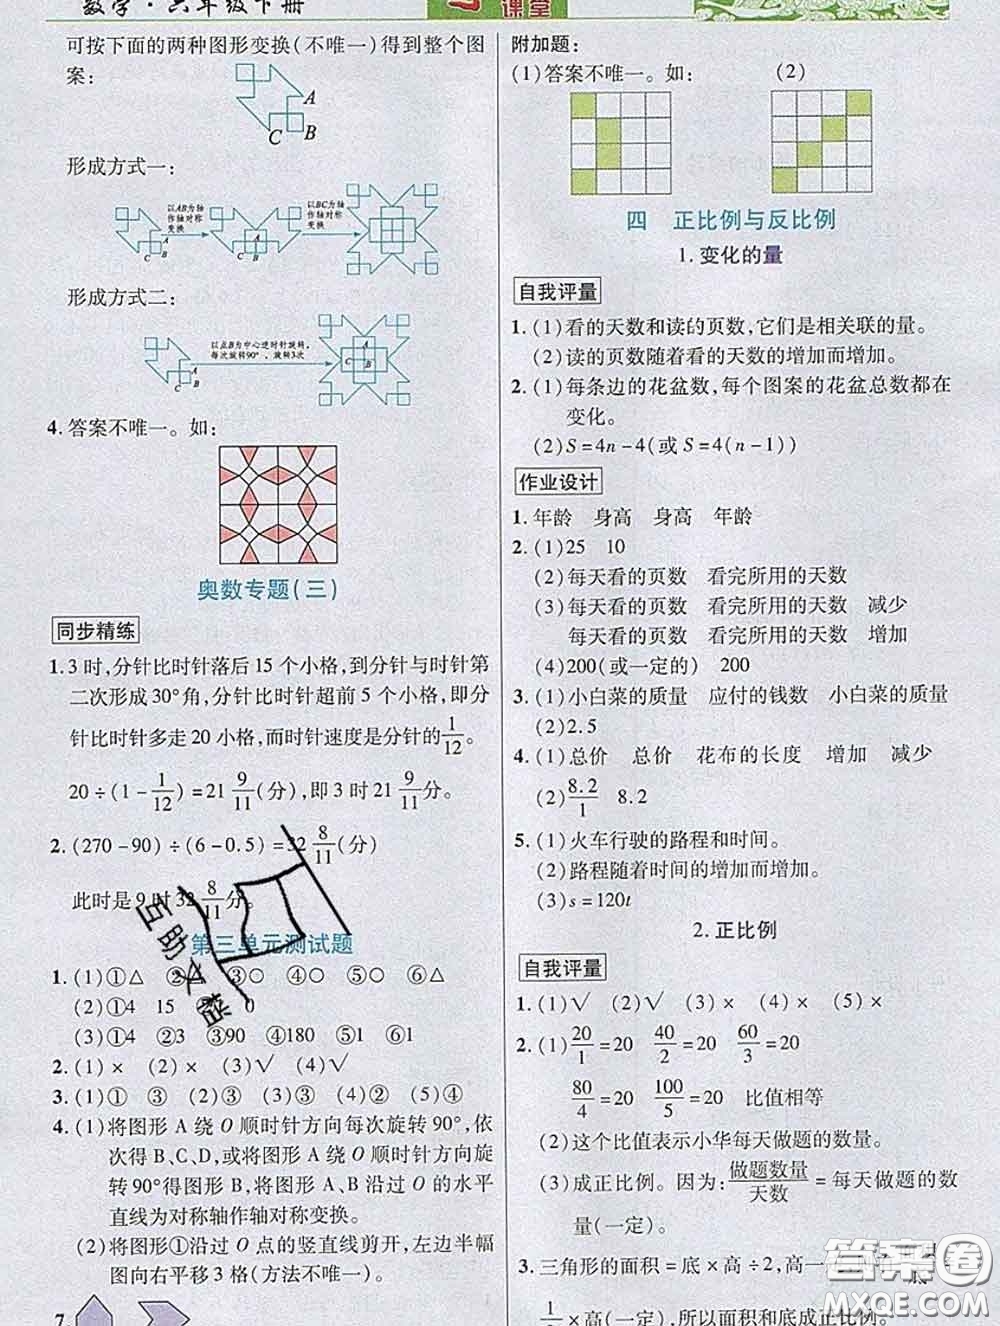 数学·六年级下册
课堂
可按下面的两种图形变换(不唯一)得到整个图
案:
A
C B
形成方式一:
以AB为轴
作轴对称
变换
以BC为轴
作轴对称
变换
形成方式二:
以点B为中心逆时针旋转,
每次旋转90°,旋转3次
4. 答案不唯一。如:
奥数专题(三)
同步精练
1. 3时,分针比时针落后15个小格,到分针与时针第
二次形成30°角,分针比时针超前5个小格,即分
针比时针多走20小格,而时针速度是分针的1/12。
20÷(1-1/12)=21 9/11(分),即3时21 9/11分。
2. (270-90)÷(6-0.5)=32 8/11(分)
此时是9时32 8/11分。
第三单元测试题
1. (1)①△ ③○ ④○ ⑤○ ⑥△
(2)①4 15 0
(3)①4 ②5 ③90 ④180 ⑤51 ⑥1
2. (1)× (2)× (3)√ (4)√
3. (1)① (2)③ (3)③ (4)② (5)④
4. (1)将图形A绕O顺时针方向每次旋转90°,依
次得B、C、D,或将图形A绕O顺时针方向旋
转90°得图形B,将图形A、B沿过O的水平
直线为对称轴作轴对称变换。
(2)将图形①沿过O点的竖直线剪开,左边半幅
图向右平移3格(方法不唯一)。
7.
附加题:
(1)答案不唯一。如: (2)
四 正比例与反比例
1. 变化的量
自我评量
1. (1)看的天数和读的页数,它们是相关联的量。
(2)读的页数随着看的天数的增加而增加。
2. (1)每条边的花盆数,每个图案的花盆总数都在
变化。
(2)S=4n-4(或S=4(n-1))
作业设计
1. 年龄 身高 身高 年龄
2. (1)25 10
(2)每天看的页数 看完所用的天数
(3)每天看的页数 看完所用的天数 减少
每天看的页数 看完所用的天数 增加
(4)200(或一定的) 200
3. (1)小白菜的质量 应付的钱数 小白菜的质量
(2)2.5
4. (1)总价 总价 花布的长度 增加 减少
(2)8.2/1 8.2
5. (1)火车行驶的路程和时间。
(2)路程随着时间的增加而增加。
(3)s=120t
2. 正比例
自我评量
1. (1)√ (2)√ (3)× (4)× (5)×
2. (1)20/1=20 40/2=20 60/3=20
80/4=20 100/5=20 比值相等
(2)这个比值表示小华每天做题的数量。
(3)成正比例。因为:做题数量/天数=每天做题的数
量(一定)。
3. 三角形的面积=底×高÷2,高一
1/2×高(一定),所以面积和底成正比例。
互助文档
答案圈
MXQE.COM